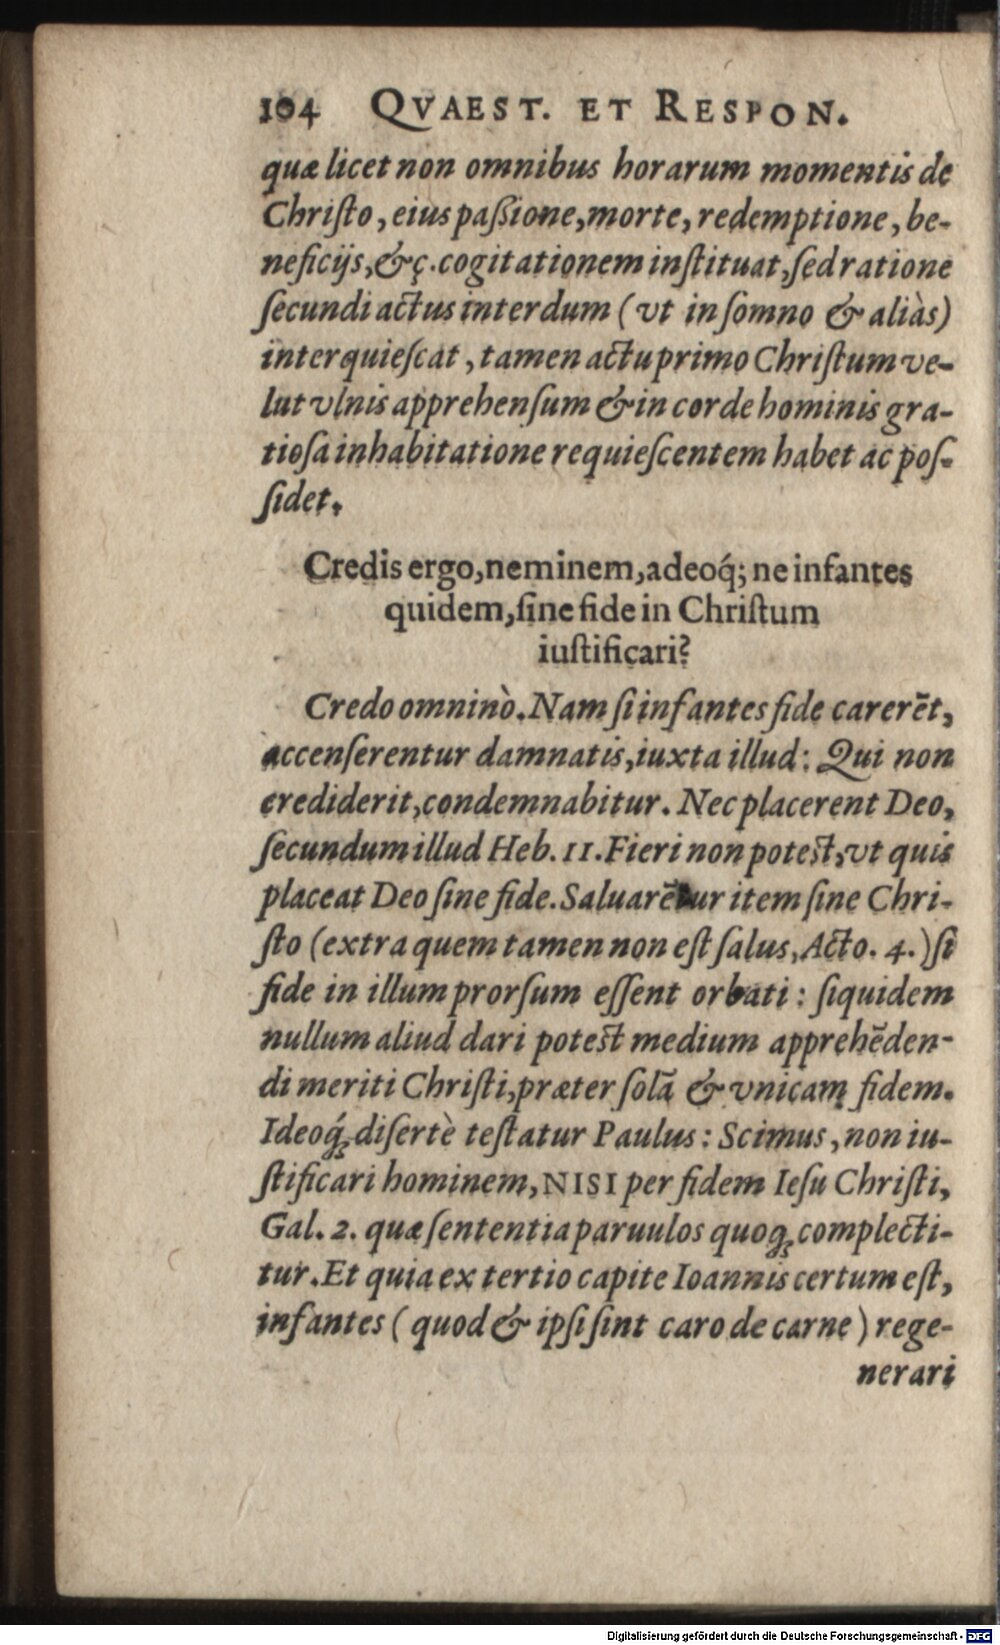 104 QVAEST. ET RESPON.
quæ licet non omnibus horarum momentis de
Chriſto, eius paſsione, morte, redemptione, be-
neficijs, &ç. cogitationem inſtituat, ſed ratione
ſecundi actus interdum (vt in ſomno & aliàs)
interquieſcat, tamen actu primo Chriſtum ve-
lut vlnis apprehenſum & in corde hominis gra-
tioſa inhabitatione requieſcentem habet ac poſ-
ſidet.
Credis ergo, neminem, adeoq́; ne infantes
quidem, ſine fide in Chriſtum
iuſtificari?
Credo omninò. Nam ſi infantes fide carerēt,
accenſerentur damnatis, iuxta illud: Qui non
crediderit, condemnabitur. Nec placerent Deo,
ſecundum illud Heb. 11. Fieri non poteſt, vt quis
placeat Deo ſine fide. Saluarētur item ſine Chri-
ſto (extra quem tamen non eſt ſalus, Acto. 4.) ſi
fide in illum prorſum eſſent orbati: ſiquidem
nullum aliud dari poteſt medium apprehēden-
di meriti Chriſti, præter ſolā & vnicam fidem.
Ideoq́ꝫ diſertè teſtatur Paulus: Scimus, non iu-
ſtificari hominem, NISI per fidem Ieſu Chriſti,
Gal. 2. quæ ſententia paruulos quoqꝫ complecti-
tur. Et quia ex tertio capite Ioannis certum eſt,
infantes (quod & ipſi ſint caro de carne) rege-
nerari
Digitalisierung gefördert durch die Deutsche Forschungsgemeinschaft - DFG